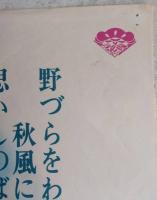 野づらをわ
秋風に
思い
のば